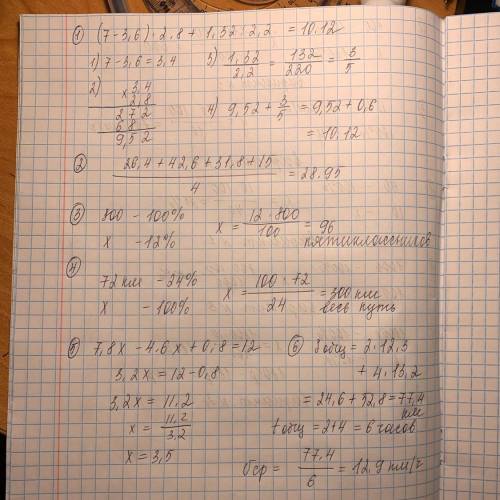 ① (7-3,6)·2,8 + 1,32 : 2,2 = 10.12
1) 7-3,6 = 3,4
2) × 3,4
2,8
272
68
9,52
3) 1,32/2,2 = 132/220 = 3/5
4) 9,52 + 3/5 = 9,52 + 0,6
= 10,12
② (26,4 + 42,6 + 31,8 + 15)/4 = 28.95
③ 800 - 100%
x - 12%
x = (12 · 800)/100 = 96
пятиклассников
④ 72 км - 24%
x - 100%
x = (100 · 72)/24 = 300 км
весь путь
⑤ 7,8x - 4.6x + 0,8 = 12
3,2x = 12 - 0,8
3,2x = 11,2
x = 11,2/3,2
x = 3,5
⑥ S общ = 2 · 12,3
+ 4 · 13,2
= 24,6 + 52,8 = 77,4
км
t общ = 2+4 = 6 часов
ср = 77,4/6 = 12,9 км/ч